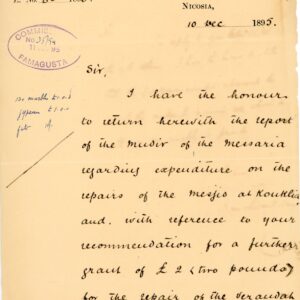 NICOSIA,
10 Dec 1895.
COMMIS
No.
95
FAMAGUSTA
Sir,
I have the honour
to return herewith the report
of the Mudir of the Messaria
regarding expenditure on the
repairs of the mesjid at Kouklia
and, with reference to your
recommendation for a further
grant of £2 (two pounds)
for the repair of the verandah